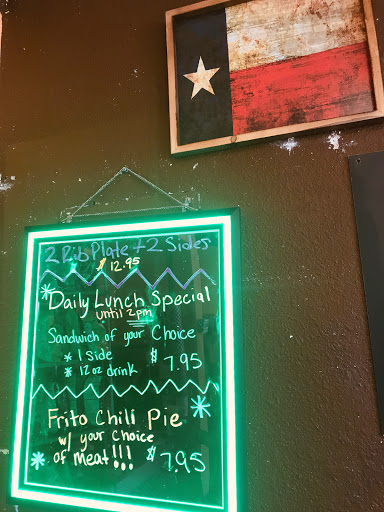 2 Rib Plate + 2 Sides
$12.95
Daily Lunch Special
until 2pm
Sandwich of your Choice
* 1 Side
* 12oz drink $7.95
Frito Chili Pie
w/ your choice
of meat!!! $7.95